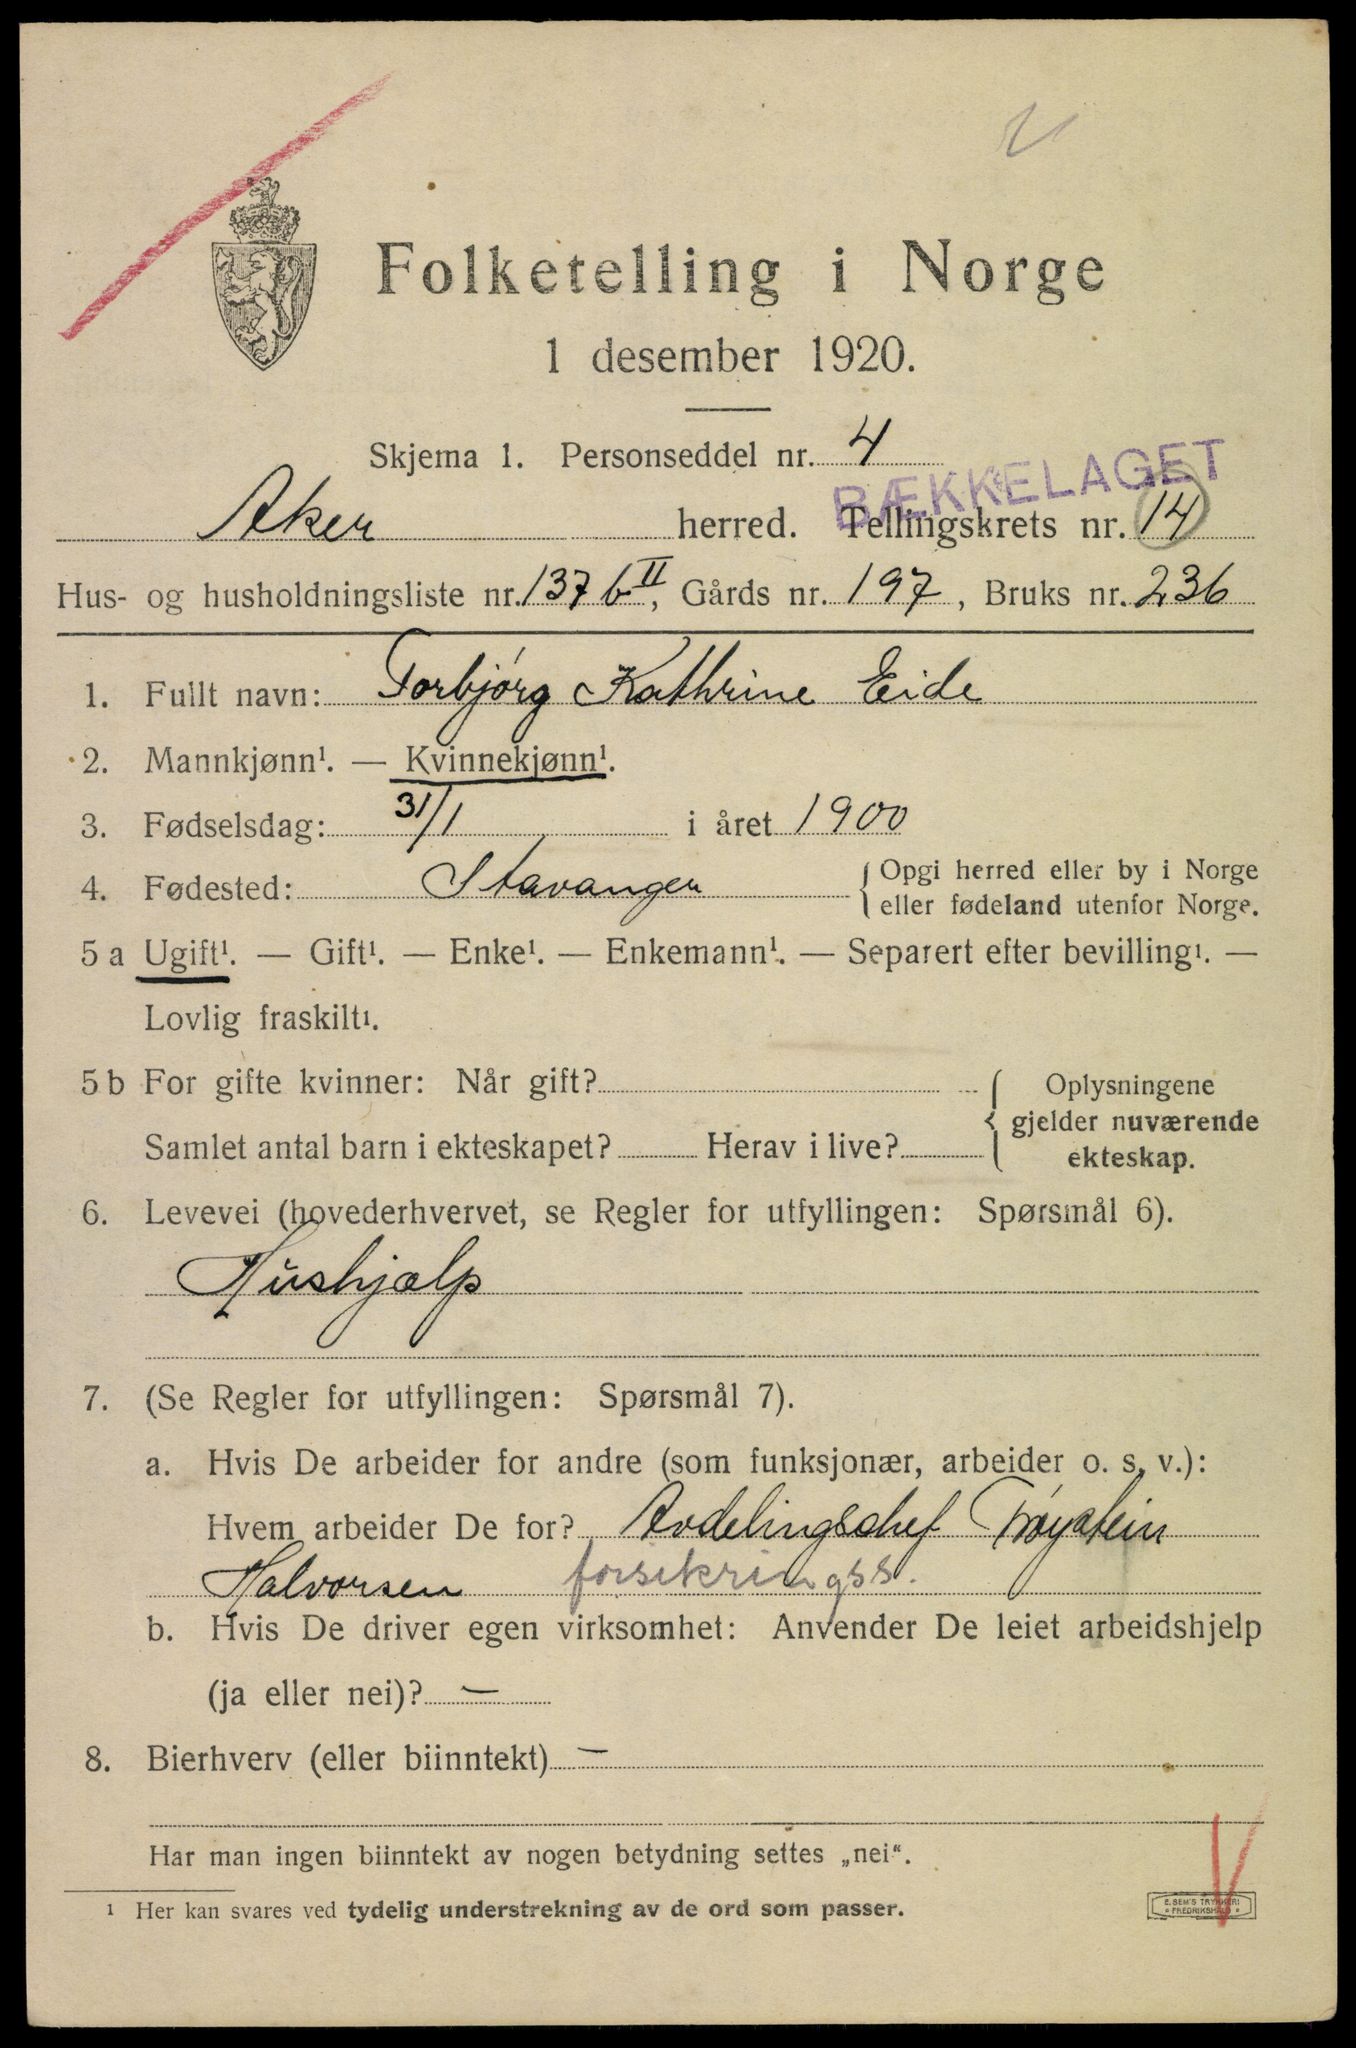 Folketelling i Norge
1 desember 1920.
Skjema 1. Personseddel nr. 4
BÆKKELAGET
Aker herred. Tellingskrets nr. 14
Hus- og husholdningsliste nr. 137 b II, Gårds nr. 197, Bruks nr. 236
1. Fullt navn: Torbjørg Kathrine Eide
2. Mannkjønn¹. — Kvinnekjønn¹.
3. Fødselsdag: 31/1 i året 1900
4. Fødested: Stavanger { Opgi herred eller by i Norge
eller fødeland utenfor Norge.
5 a Ugift¹. — Gift¹. — Enke¹. — Enkemann¹. — Separert efter bevilling¹. —
Lovlig fraskilt¹.
5 b For gifte kvinner: Når gift? { Oplysningene
gjelder nuværende
Samlet antal barn i ekteskapet? Herav i live? ekteskap.
6. Levevei (hovederhvervet, se Regler for utfyllingen: Spørsmål 6).
Hushjælp
7. (Se Regler for utfyllingen: Spørsmål 7).
a. Hvis De arbeider for andre (som funksjonær, arbeider o. s. v.):
Hvem arbeider De for? Avdelingschef Trøystein
Halvorsen forsikringss.
b. Hvis De driver egen virksomhet: Anvender De leiet arbeidshjelp
(ja eller nei)? —
8. Bierhverv (eller biinntekt) —
Har man ingen biinntekt av nogen betydning settes „nei“.
¹ Her kan svares ved tydelig understrekning av de ord som passer.
E. SEM'S TRYKKERI
FREDRIKSHALD